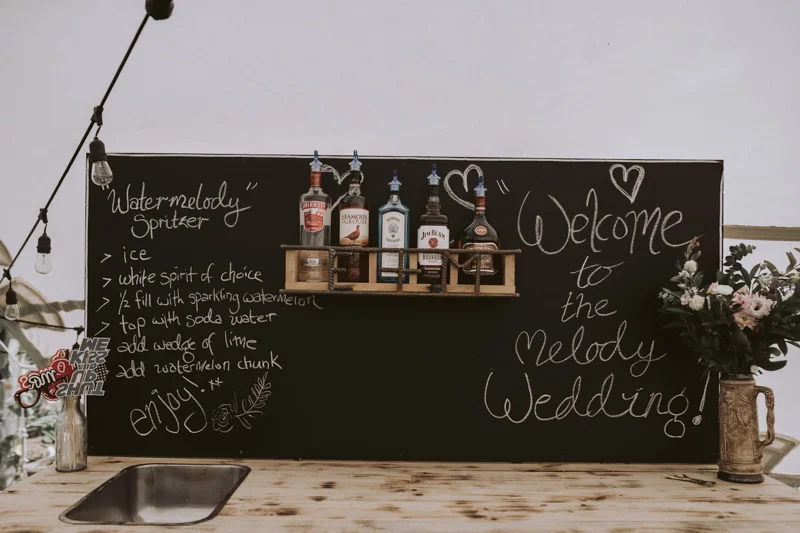 "Watermelody"
Spritzer
> ice
> white spirit of choice
> ½ fill with sparkling watermelon
> top with soda water
> add wedge of lime
> add watermelon chunk
enjoy!
SMIRNOFF
FAMOUS
GROUSE
BOMBAY
JIM BEAM
BOURBON
"Welcome
to
the
Melody
Wedding!